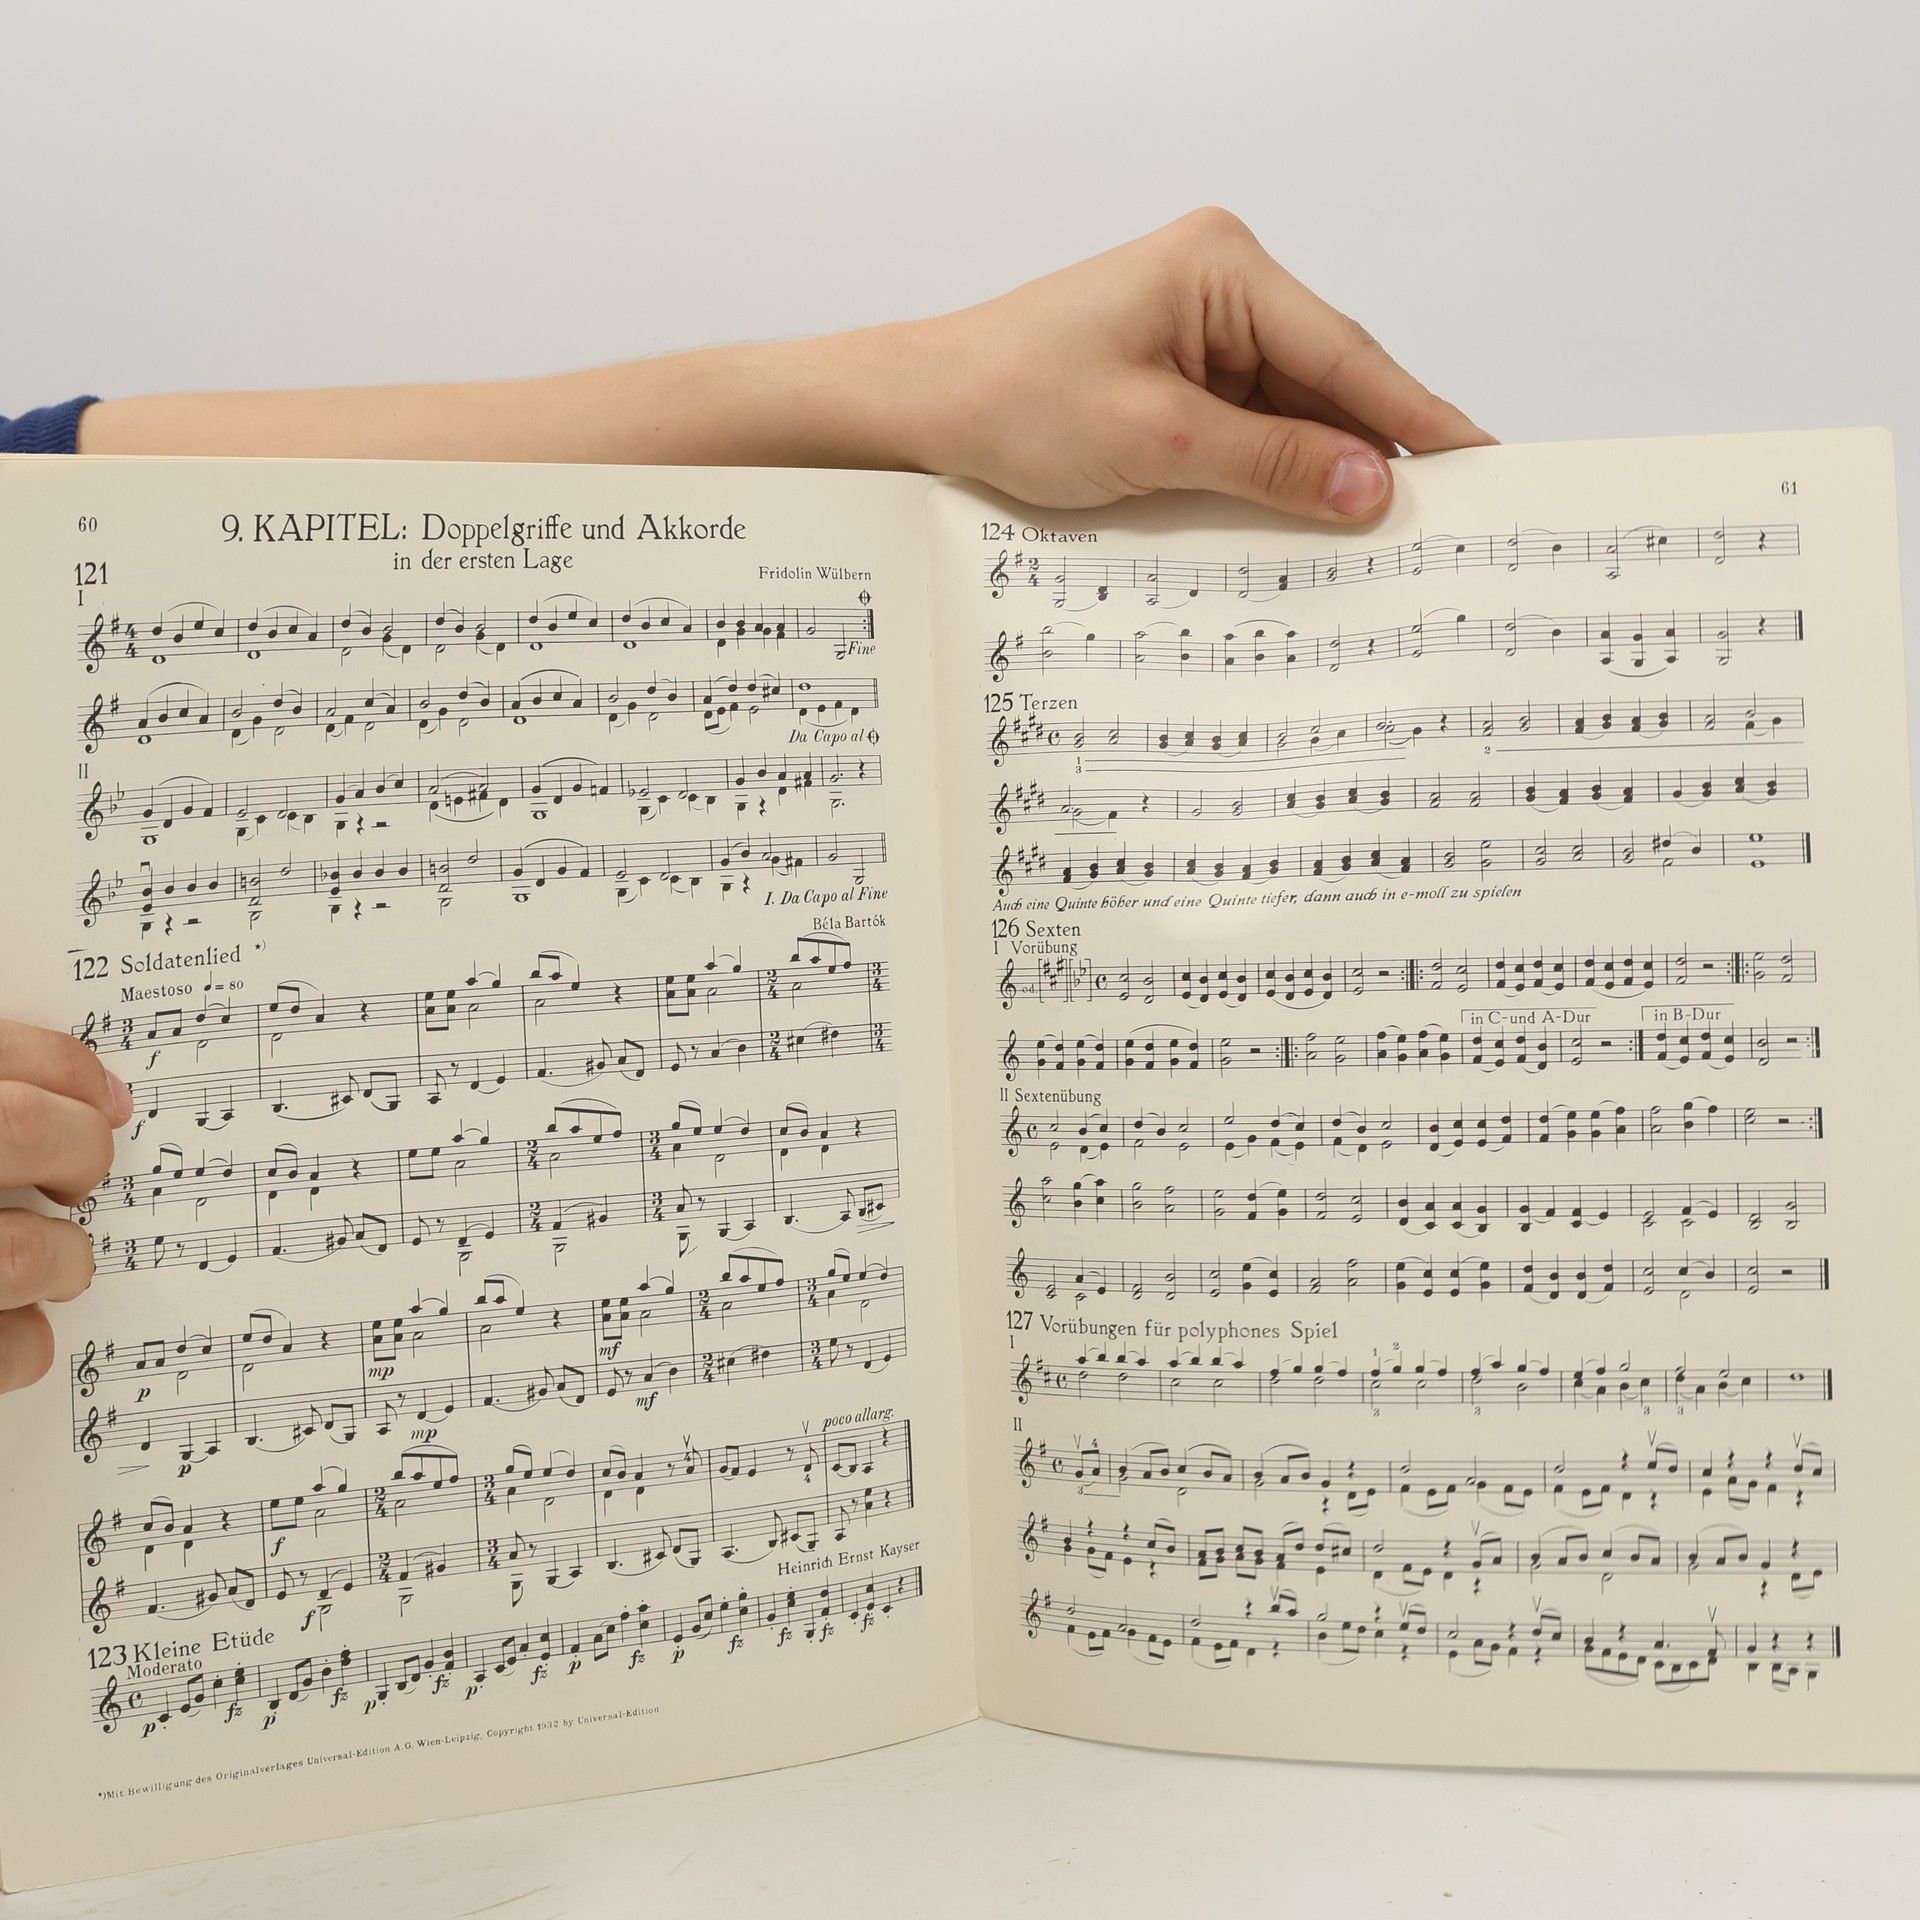 60
9. KAPITEL: Doppelgriffe und Akkorde
in der ersten Lage
121
Fridolin Wülbern
I
Fine
Da Capo al
II
I. Da Capo al Fine
Béla Bartók
122 Soldatenlied *)
Maestoso = 80
f
f
p
mp
mf
p
mp
mf
poco allarg.
f
f
Heinrich Ernst Kayser
123 Kleine Etüde
Moderato
p fz p fz p fz p fz p fz p fz fz fz fz
*) Mit Bewilligung des Originalverlages Universal-Edition A.G. Wien-Leipzig, Copyright 1932 by Universal-Edition
61
124 Oktaven
125 Terzen
1
3
2
Auch eine Quinte höher und eine Quinte tiefer, dann auch in e-moll zu spielen
126 Sexten
I Vorübung
od.
in C- und A-Dur
in B-Dur
II Sextenübung
127 Vorübungen für polyphones Spiel
I
1 2
3 3 3 3
II
4
3